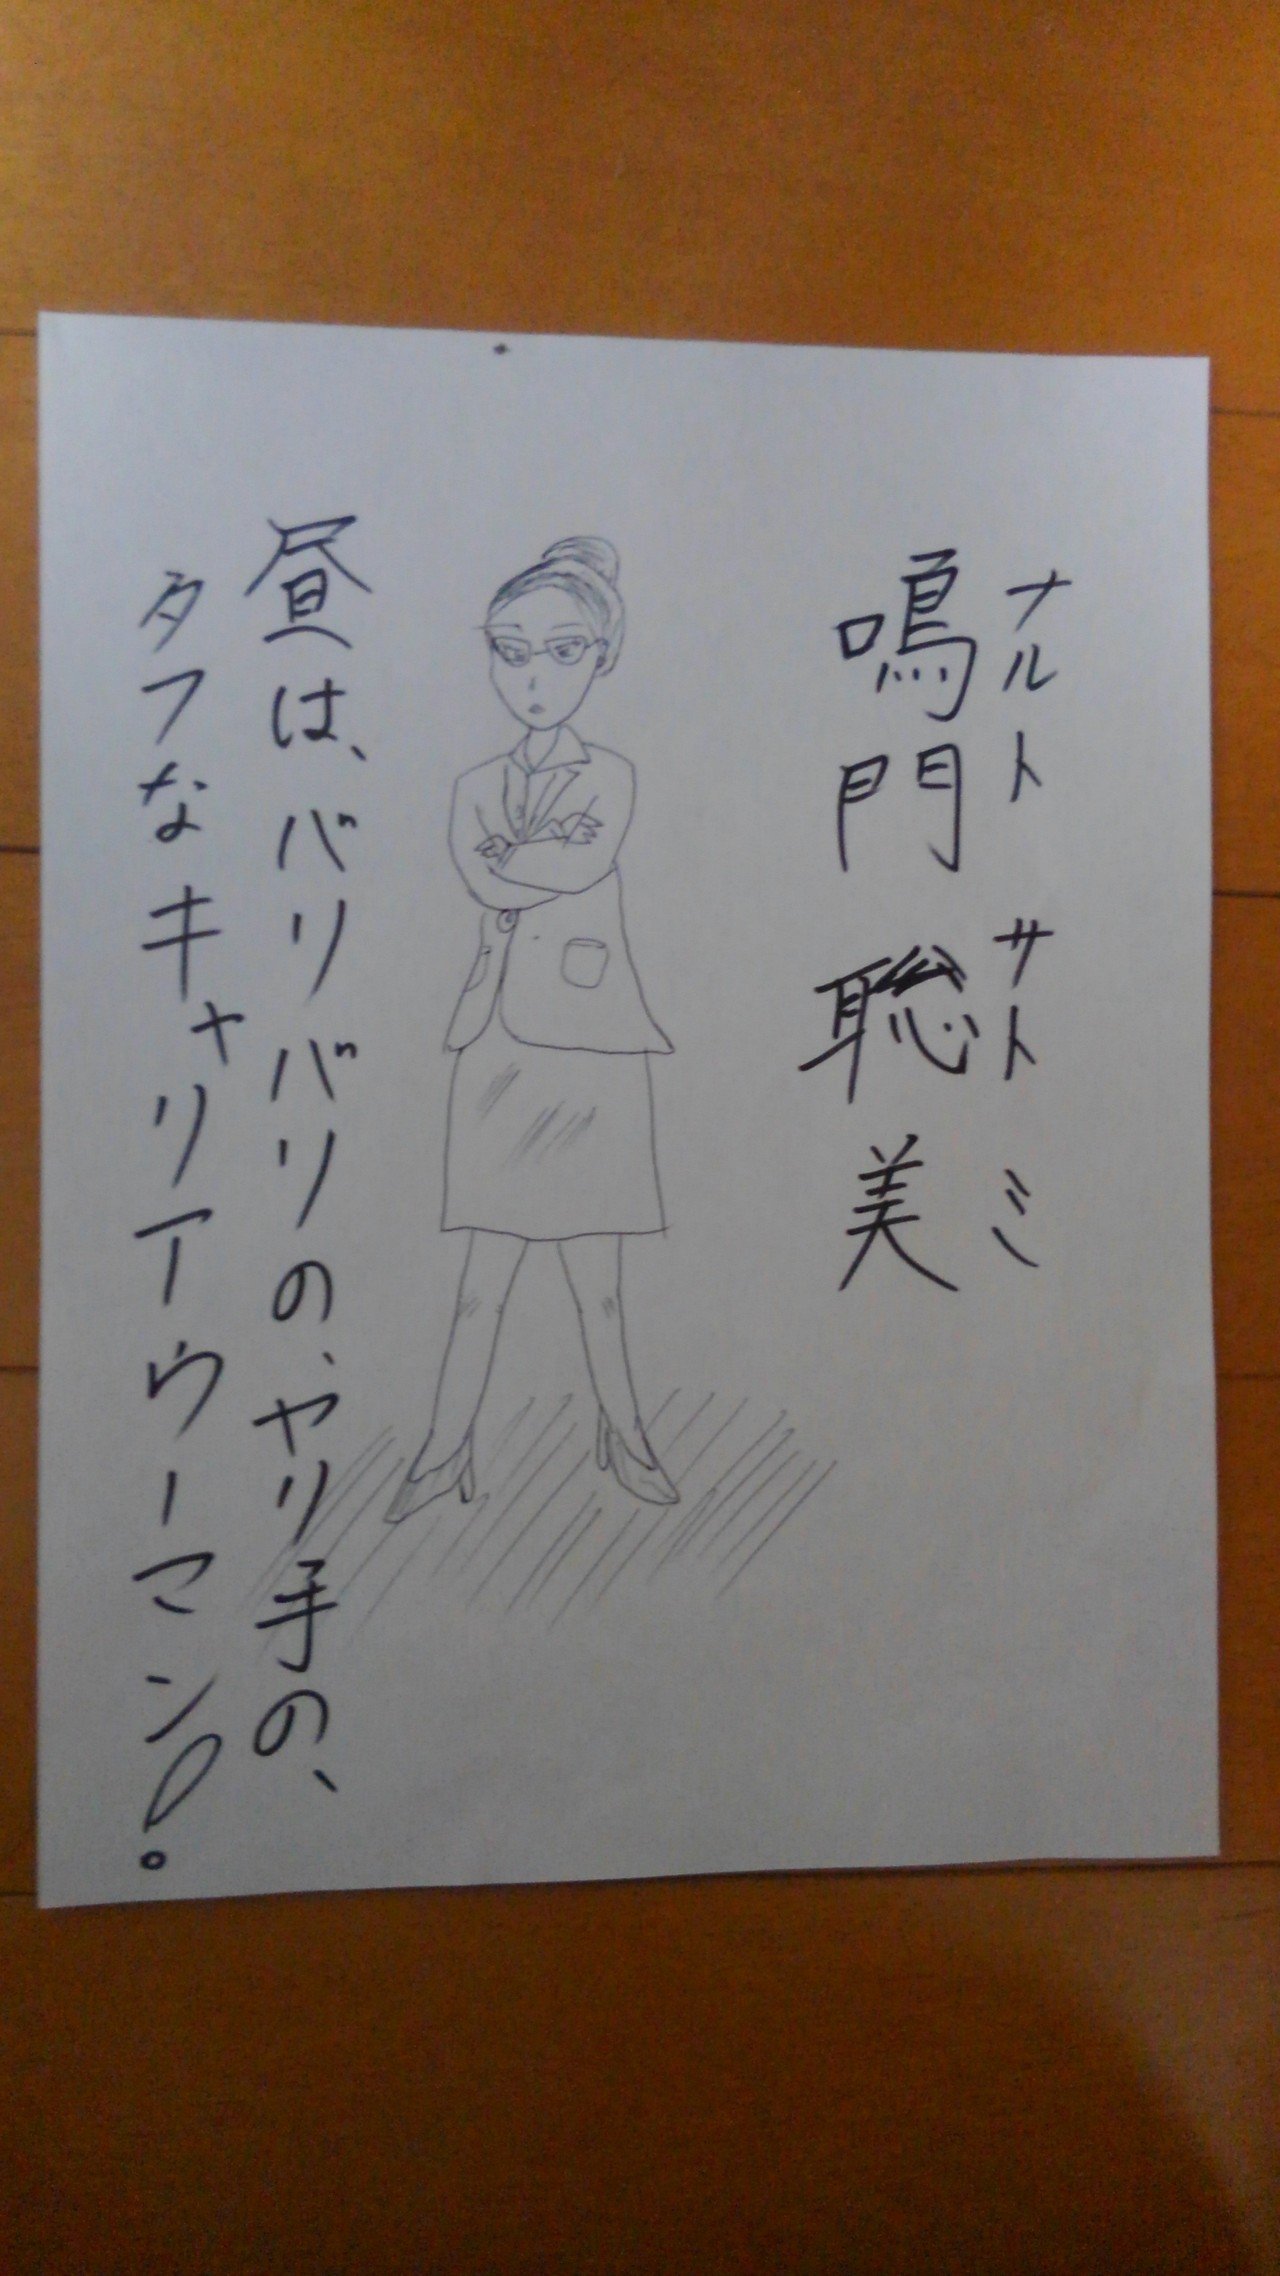 ナルト サトミ
鳴門 聡美
昼は、バリバリの、ヤリ手の、
タフなキャリアウーマン!。